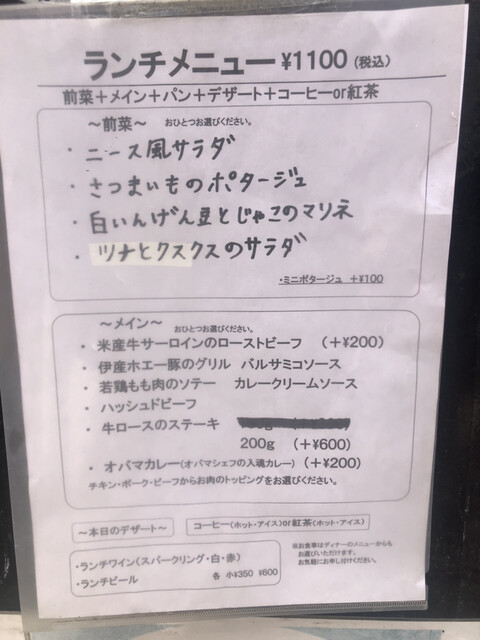 ランチメニュー ¥1100(税込)
前菜+メイン+パン+デザート+コーヒーor紅茶
~前菜~ おひとつお選びください。
・ニース風サラダ
・さつまいものポタージュ
・白いんげん豆とじゃこのマリネ
・ツナとクスクスのサラダ
・ミニポタージュ +¥100
~メイン~ おひとつお選びください。
・米産牛サーロインのローストビーフ (+¥200)
・伊産ホエー豚のグリル バルサミコソース
・若鶏もも肉のソテー カレークリームソース
・ハッシュドビーフ
・牛ロースのステーキ
200g (+¥600)
・オバマカレー(オバマシェフの入魂カレー) (+¥200)
チキン・ポーク・ビーフからお肉のトッピングをお選びください。
~本日のデザート~
コーヒー(ホット・アイス)or紅茶(ホット・アイス)
・ランチワイン(スパークリング・白・赤)
・ランチビール 各 小¥350 ¥600
※お食事はディナーのメニューからも
お選びいただけます。
お気軽にお申し付けください。